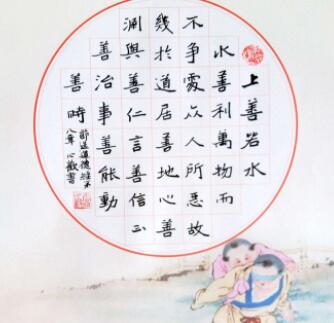 上善若水
水善利萬物而
不争處众人所恶故
幾於道居善地心善
渊與善仁言善信正
善治事善能動
善時
節選道德經第
八章 心書